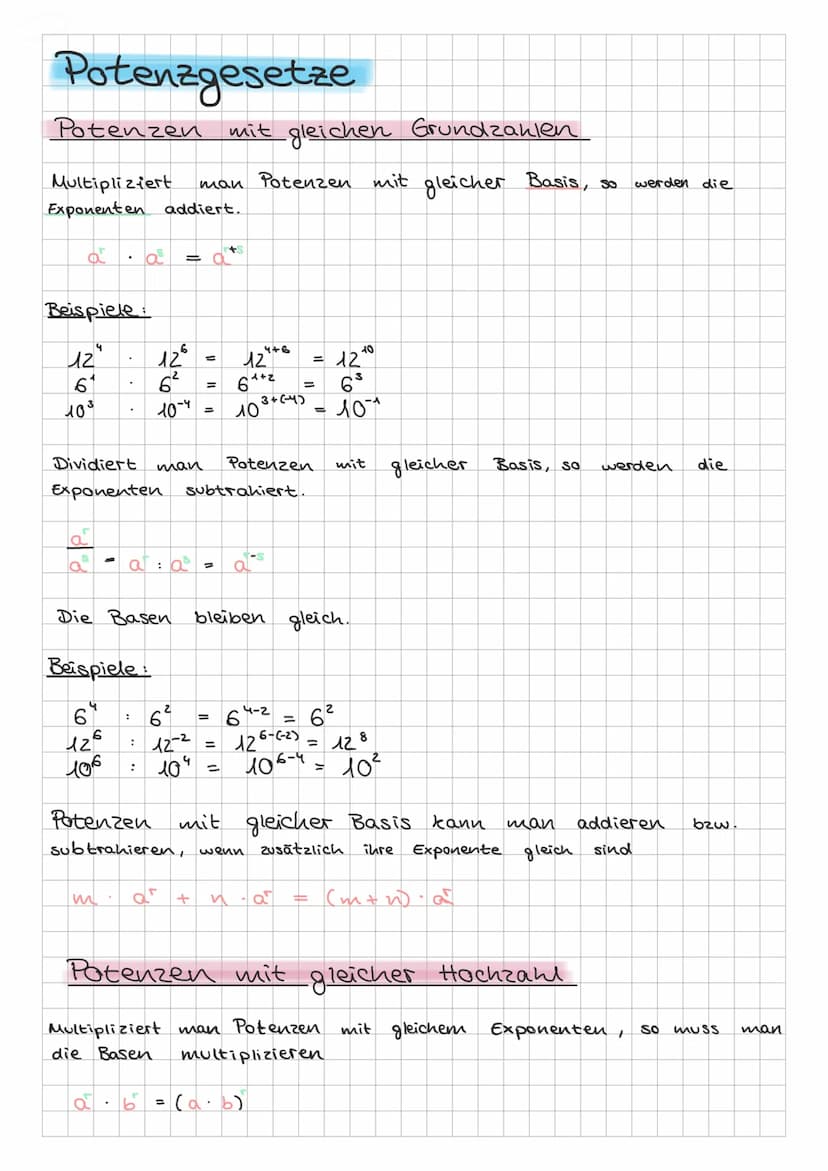 Potenzgesetze
Potenzen mit gleichen Grundzahlen
Multipliziert man Potenzen mit gleicher Basis, so werden die
Exponenten addiert.
aʳ · aˢ = aʳ⁺ˢ
Beispiele:
12⁴ · 12⁶ = 12⁴⁺⁶ = 12¹⁰
6¹ · 6² = 6¹⁺² = 6³
10³ · 10⁻⁴ = 10³⁺⁽⁻⁴⁾ = 10⁻¹
Dividiert man Potenzen mit gleicher Basis, so werden die
Exponenten subtrahiert.
aʳ
aˢ = aʳ : aˢ = aʳ⁻ˢ
Die Basen bleiben gleich.
Beispiele:
6⁴ : 6² = 6⁴⁻² = 6²
12⁶ : 12⁻² = 12⁶⁻⁽⁻²⁾ = 12⁸
10⁶ : 10⁴ = 10⁶⁻⁴ = 10²
Potenzen mit gleicher Basis kann man addieren bzw.
subtrahieren, wenn zusätzlich ihre Exponente gleich sind
m · aʳ + n · aʳ = (m+n) · aʳ
Potenzen mit gleicher Hochzahl
Multipliziert man Potenzen mit gleichem Exponenten, so muss man
die Basen multiplizieren
aʳ · bʳ = (a · b)ʳ